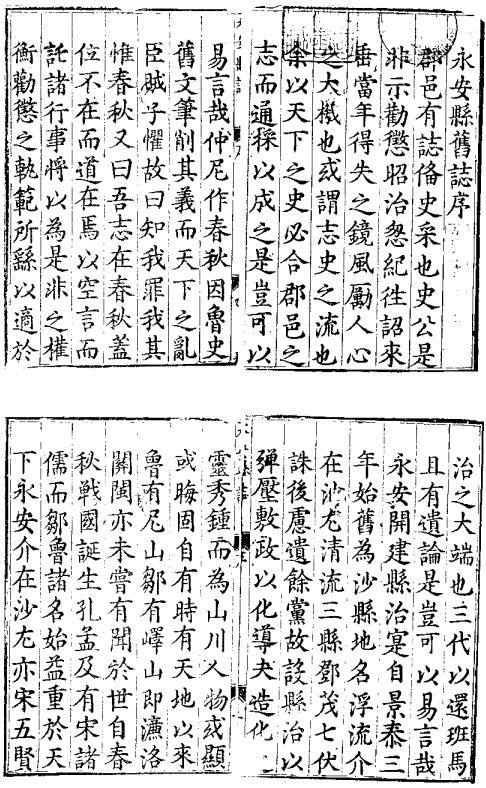 永安縣舊誌序
郡邑有誌俻史采也史公是
非示勸懲昭治忽紀徃詔來
垂當年得失之鏡風勵人心
之大機也或謂志史之流也
余以天下之史必合郡邑之
志而通採以成之是豈可以
易言哉仲尼作春秋因魯史
舊文筆削其義而天下之亂
臣賊子懼故曰知我罪我其
惟春秋又曰吾志在春秋葢
位不在而道在焉以空言而
託諸行事將以為是非之權
衡勸懲之軌範所繇以適於
治之大端也三代以還班馬
且有遺論是豈可以易言哉
永安開建縣治寔自景泰三
年始舊為沙縣地名浮流介
在沙尤清流三縣鄧茂七伏
誅後慮遺餘黨故設縣治以
彈壓敷政以化導夫造化
靈秀鍾而為山川人物或顯
或晦固自有時有天地以來
魯有尼山鄒有嶧山即濂洛
關閩亦未嘗有聞於世自春
秋戰國誕生孔孟及有宋諸
儒而鄒魯諸名始益重於天
下永安介在沙尤亦宋五賢